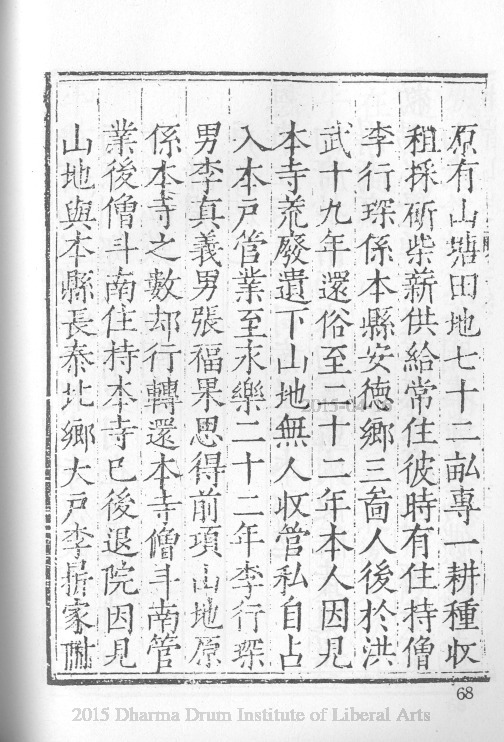 原有山塘田地七十二畝專一耕種收
租採斫柴薪供給常住彼時有住持僧
李行琛係本縣安德鄉三啚人後於洪
武十九年還俗至二十二年本人因見
本寺荒廢遺下山地無人收管私自占
入本戶管業至永樂二十二年李行琛
男李真義男張福果思得前項山地原
係本寺之數却行轉還本寺僧斗南管
業後僧斗南住持本寺已後退院因見
山地與本縣長泰北鄉大戶李家
68
2015 Dharma Drum Institute of Liberal Arts